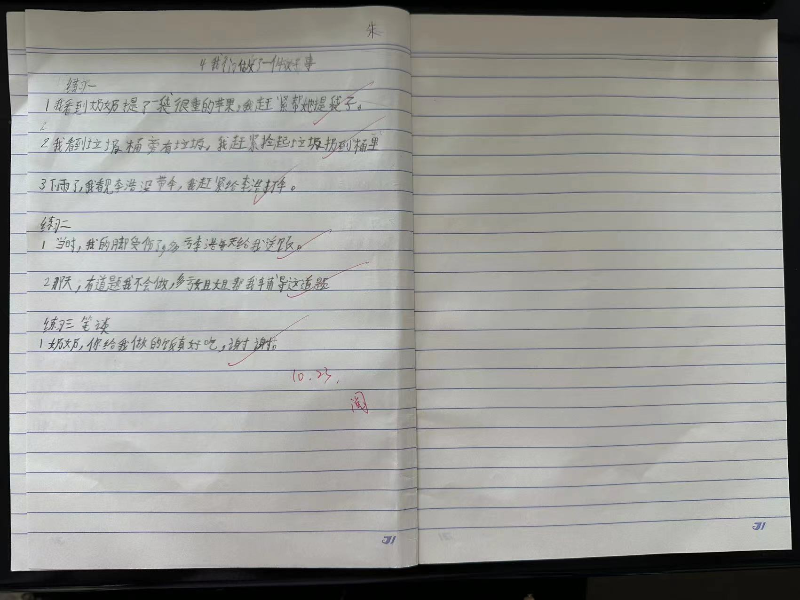 朱
4 我们做了一件好事
练习一
1 我看到奶奶提了一袋很重的苹果,我赶紧帮她提袋子。
2
2 我看到垃圾桶旁有垃圾,我赶紧捡起垃圾扔到桶里
3 下雨了,我看见李浩没带伞,我赶紧给李浩打伞。
练习二
1 当时,我的脚受伤了,多亏李浩每天给我送饭。
2 那天,有道题我不会做,多亏姐姐帮我辅导这道题
练习三 笔谈
1 奶奶,你给我做的饭真好吃,谢谢您。
10.23.
阅
31
31